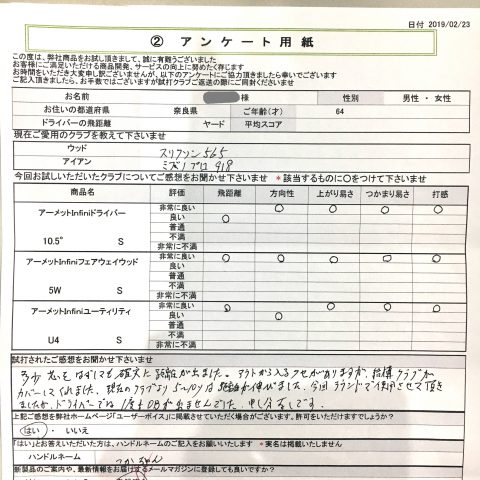 日付 2019/02/23
② アンケート用紙
この度は、弊社商品をお試し頂きまして、誠に有難うございました
お客様にご満足いただける商品開発、サービスの向上に努めたく存じます
お時間をいただき大変申し訳ございませんが、以下のアンケートにご協力頂きましたら幸いでございます
ご記入頂きましたら、お手数ではございますが試打クラブご返送の際にご同封くださいませ
お名前 様 性別 男性 ・ 女性
お住いの都道府県 奈良県 ご年齢(才) 64
ドライバーの飛距離 ヤード 平均スコア
現在ご愛用のクラブを教えて下さいませ
ウッド スリクソン 565
アイアン ミズノプロ 918
今回お試しいただいたクラブについてご感想をお聞かせ下さいませ *該当するものに○をつけて下さいませ
商品名 評価 飛距離 方向性 上がり易さ つかまり易さ 打感
アーメットInfiniドライバー
10.5° S
非常に良い ○ ○ ○ ○
良い ○
普通
不満
非常に不満
アーメットInfiniフェアウェイウッド
5W S
非常に良い ○ ○ ○ ○ ○
良い
普通
不満
非常に不満
アーメットInfiniユーティリティ
U4 S
非常に良い ○ ○ ○ ○
良い ○
普通
不満
非常に不満
試打されたご感想をお聞かせ下さいませ
多少芯をはずしても確実に距離が出ました。アウトから入るクセがありますが、結構クラブが
カバーしてくれました。現在のクラブより5〜10Yは飛距離が伸びました。今回ラウンドで使用させて頂き
ましたが、ドライバーでは1度もOBが出ませんでした。申し分なしです。
上記ご感想を弊社ホームページ「ユーザーボイス」に掲載させていただく場合がございます。許可をいただけますでしょうか?
はい ・ いいえ
「はい」とお答えいただいた方は、ハンドルネームのご記入をお願いいたします *実名は掲載いたしません
ハンドルネーム つかちゃん
新製品のご案内や、最新情報をお届けするメールマガジンに登録しても良いですか?